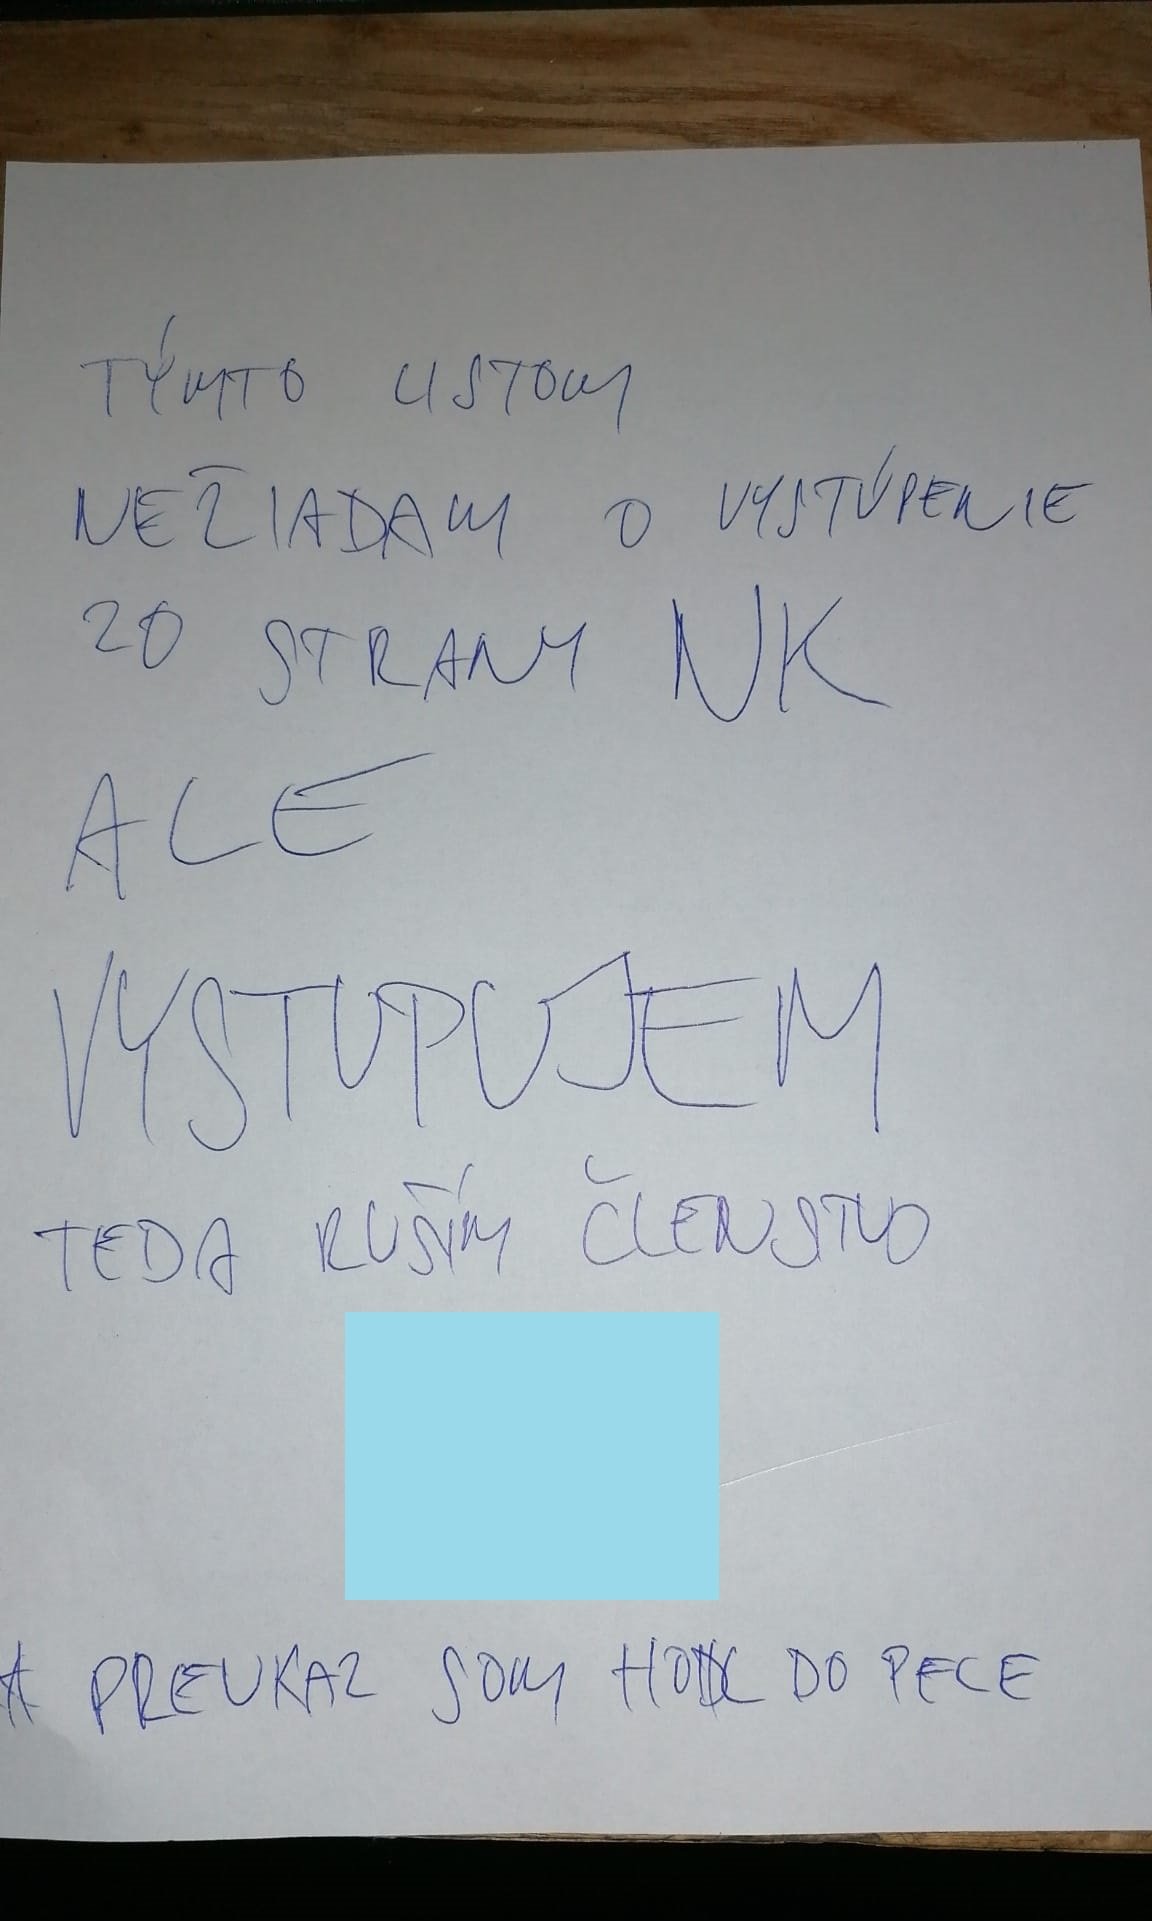 TÝMTO LISTOM
NEŽIADAM O VYSTÚPENIE
ZO STRANY NK
ALE
VYSTUPUJEM
TEDA RUŠÍM ČLENSTVO
* PREUKAZ SOM DO PECE